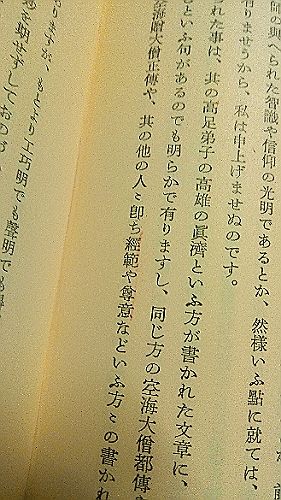 師の與へられた智識や信仰の光明であるとか、然樣いふ點に就ては、
有りませうから、私は申上げませぬのです。
られた事は、其の高足弟子の高雄の眞濟といふ方が書かれた文章に、
もといふ句があるのでも明らかで有りますし、同じ方の空海大僧都傳や
空海贈大僧正傳や、其の他の人〻卽ち經範や尊意などいふ方〻の書かれ
ありますが、もとより工巧明でも聲明でも
妙を盡せずしておのづ